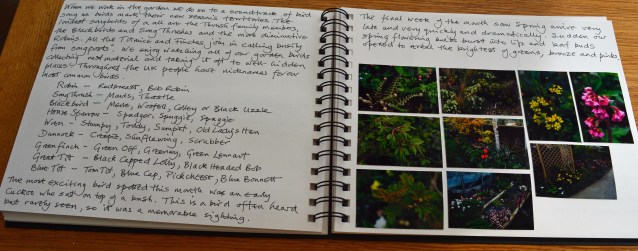 When we work in the garden we do so to a soundtrack of bird
song as birds mark their new season's territories. The
loudest songbirds of all are the Thrush family members,
the Blackbirds and Song Thrushes and the more diminutive
Robins. All the Titmice and Finches join in calling busily
from songposts. We enjoy watching all of our garden birds
collecting nest material and taking it off to well-hidden
places. Throughout the UK people have nicknames for our
most common birds.
Robin - Redbreast, Bob Robin
Song Thrush - Mavis, Throstle
Blackbird - Merle, Woofell, Colley or Black Uzzle
House Sparrow - Spadger, Spuggie, Spoggie
Wren - Stumpy, Toddy, Old Lady's Hen
Dunnock - Creepie, Shufflewing, Scrubber
Greenfinch - Green Olf, Greeney, Green Lennart
Great Tit - Black Capped Lolly, Black Headed Bob
Blue Tit - Tom Tit, Blue Cap, Pickcheese, Blue Bonnett
The most exciting bird spotted this month was an early
Cuckoo who sat on top of a bush. This is a bird often heard
but rarely seen, so it was a memorable sighting.
The final week of the month saw Spring arrive very
late and very quickly and dramatically. Sudden our
spring flowering bulbs burst into life and leaf buds
opened to reveal the brightest of greens, bronze and pinks.